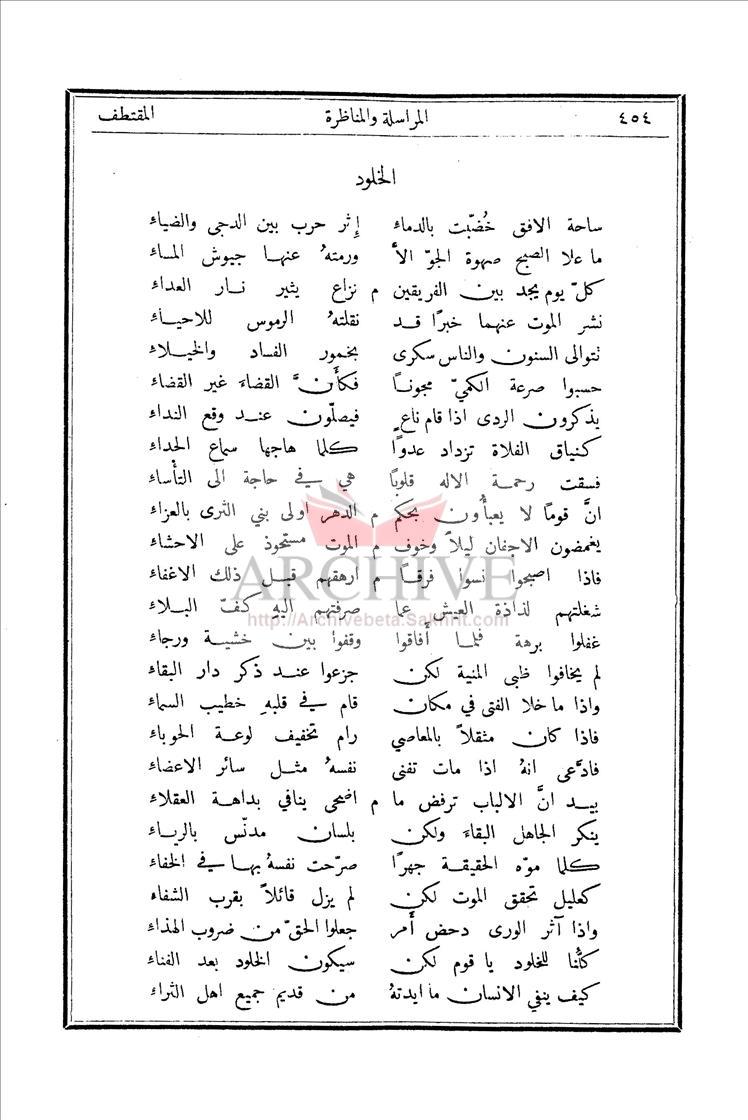 ٤٥٤ المراسلة والمناظرة المقتطف
الخلود
ساحة الافق خُضّبت بالدماء إِثر حرب بين الدجى والضياء
ما علا الصبح صهوة الجوّ الأ ورمتهُ عنها جيوش المساء
كلّ يوم يجد بين الفريقين م نزاع يثير نار العداء
نشر الموت عنهما خبرًا قد نقلتهُ الرموس للاحياء
تتوالى السنون والناس سكرى بخمور الفساد والخيلاء
حسبوا صرعة الكميّ مجونًا فكأَنَّ القضاءَ غير القضاء
يذكرون الردى اذا قام ناعٍ فيصلّون عند وقع النداء
كنياق الفلاة تزداد عدوًا كلما هاجها سماع الحداء
فسقت رحمة الاله قلوبًا هي في حاجة الى التأساء
انَّ قومًا لا يعبأُون بحكم م الدهر اولى بني الثرى بالعزاء
يغمضون الاجفان ليلاً وخوف م الموت مستحوذ على الاحشاء
فاذا اصبحوا نسوا فرقًا م ارهقهم قبل ذلك الاغفاء
شغلتهم لذاذة العيش عما صرفتهم اليهِ كفّ البلاء
غفلوا برهة فلما أَفاقوا وقفوا بين خشية ورجاء
لم يخافوا ظبى المنية لكن جزعوا عند ذكر دار البقاء
واذا ما خلا الفتى في مكان قام في قلبهِ خطيب السماء
فاذا كان مثقلاً بالمعاصي رام تخفيف لوعة الحوباء
فادَّعى انهُ اذا مات تفنى نفسهُ مثل سائر الاعضاء
بيد انَّ الالباب ترفض ما م اضحى ينافي بداهة العقلاء
ينكر الجاهل البقاءَ ولكن بلسان مدنّس بالرياء
كلما موّه الحقيقة جهرًا صرّحت نفسهُ بها في الخفاء
كعليل تحقق الموت لكن لم يزل قائلاً بقرب الشفاء
واذا آثر الورى دحض أَمر جعلوا الحقّ من ضروب الهذاء
كلُّنا للخلود يا قوم لكن سيكون الخلود بعد الفناء
كيف ينفي الانسان ما ايدتهُ من قديم جميع اهل الثراء
ARCHIVE
http://Archivebeta.Sakhrit.com